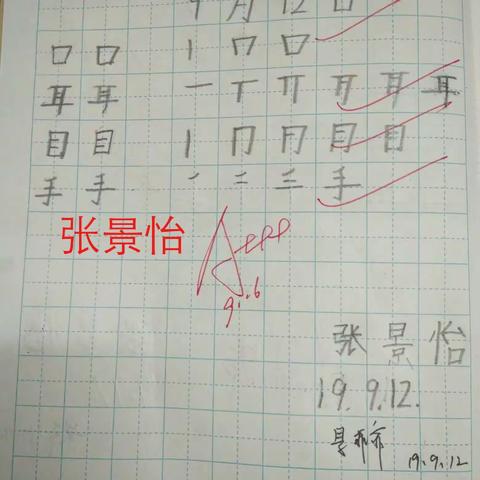 9月12日
口 口 丨 冂 口
耳 耳 一 丅 丌 耳 耳
目 目 丨 冂 月 目 目
手 手 一 二 三 手
张景怡
A+++
9.6
张景怡
19.9.12.
19.9.12